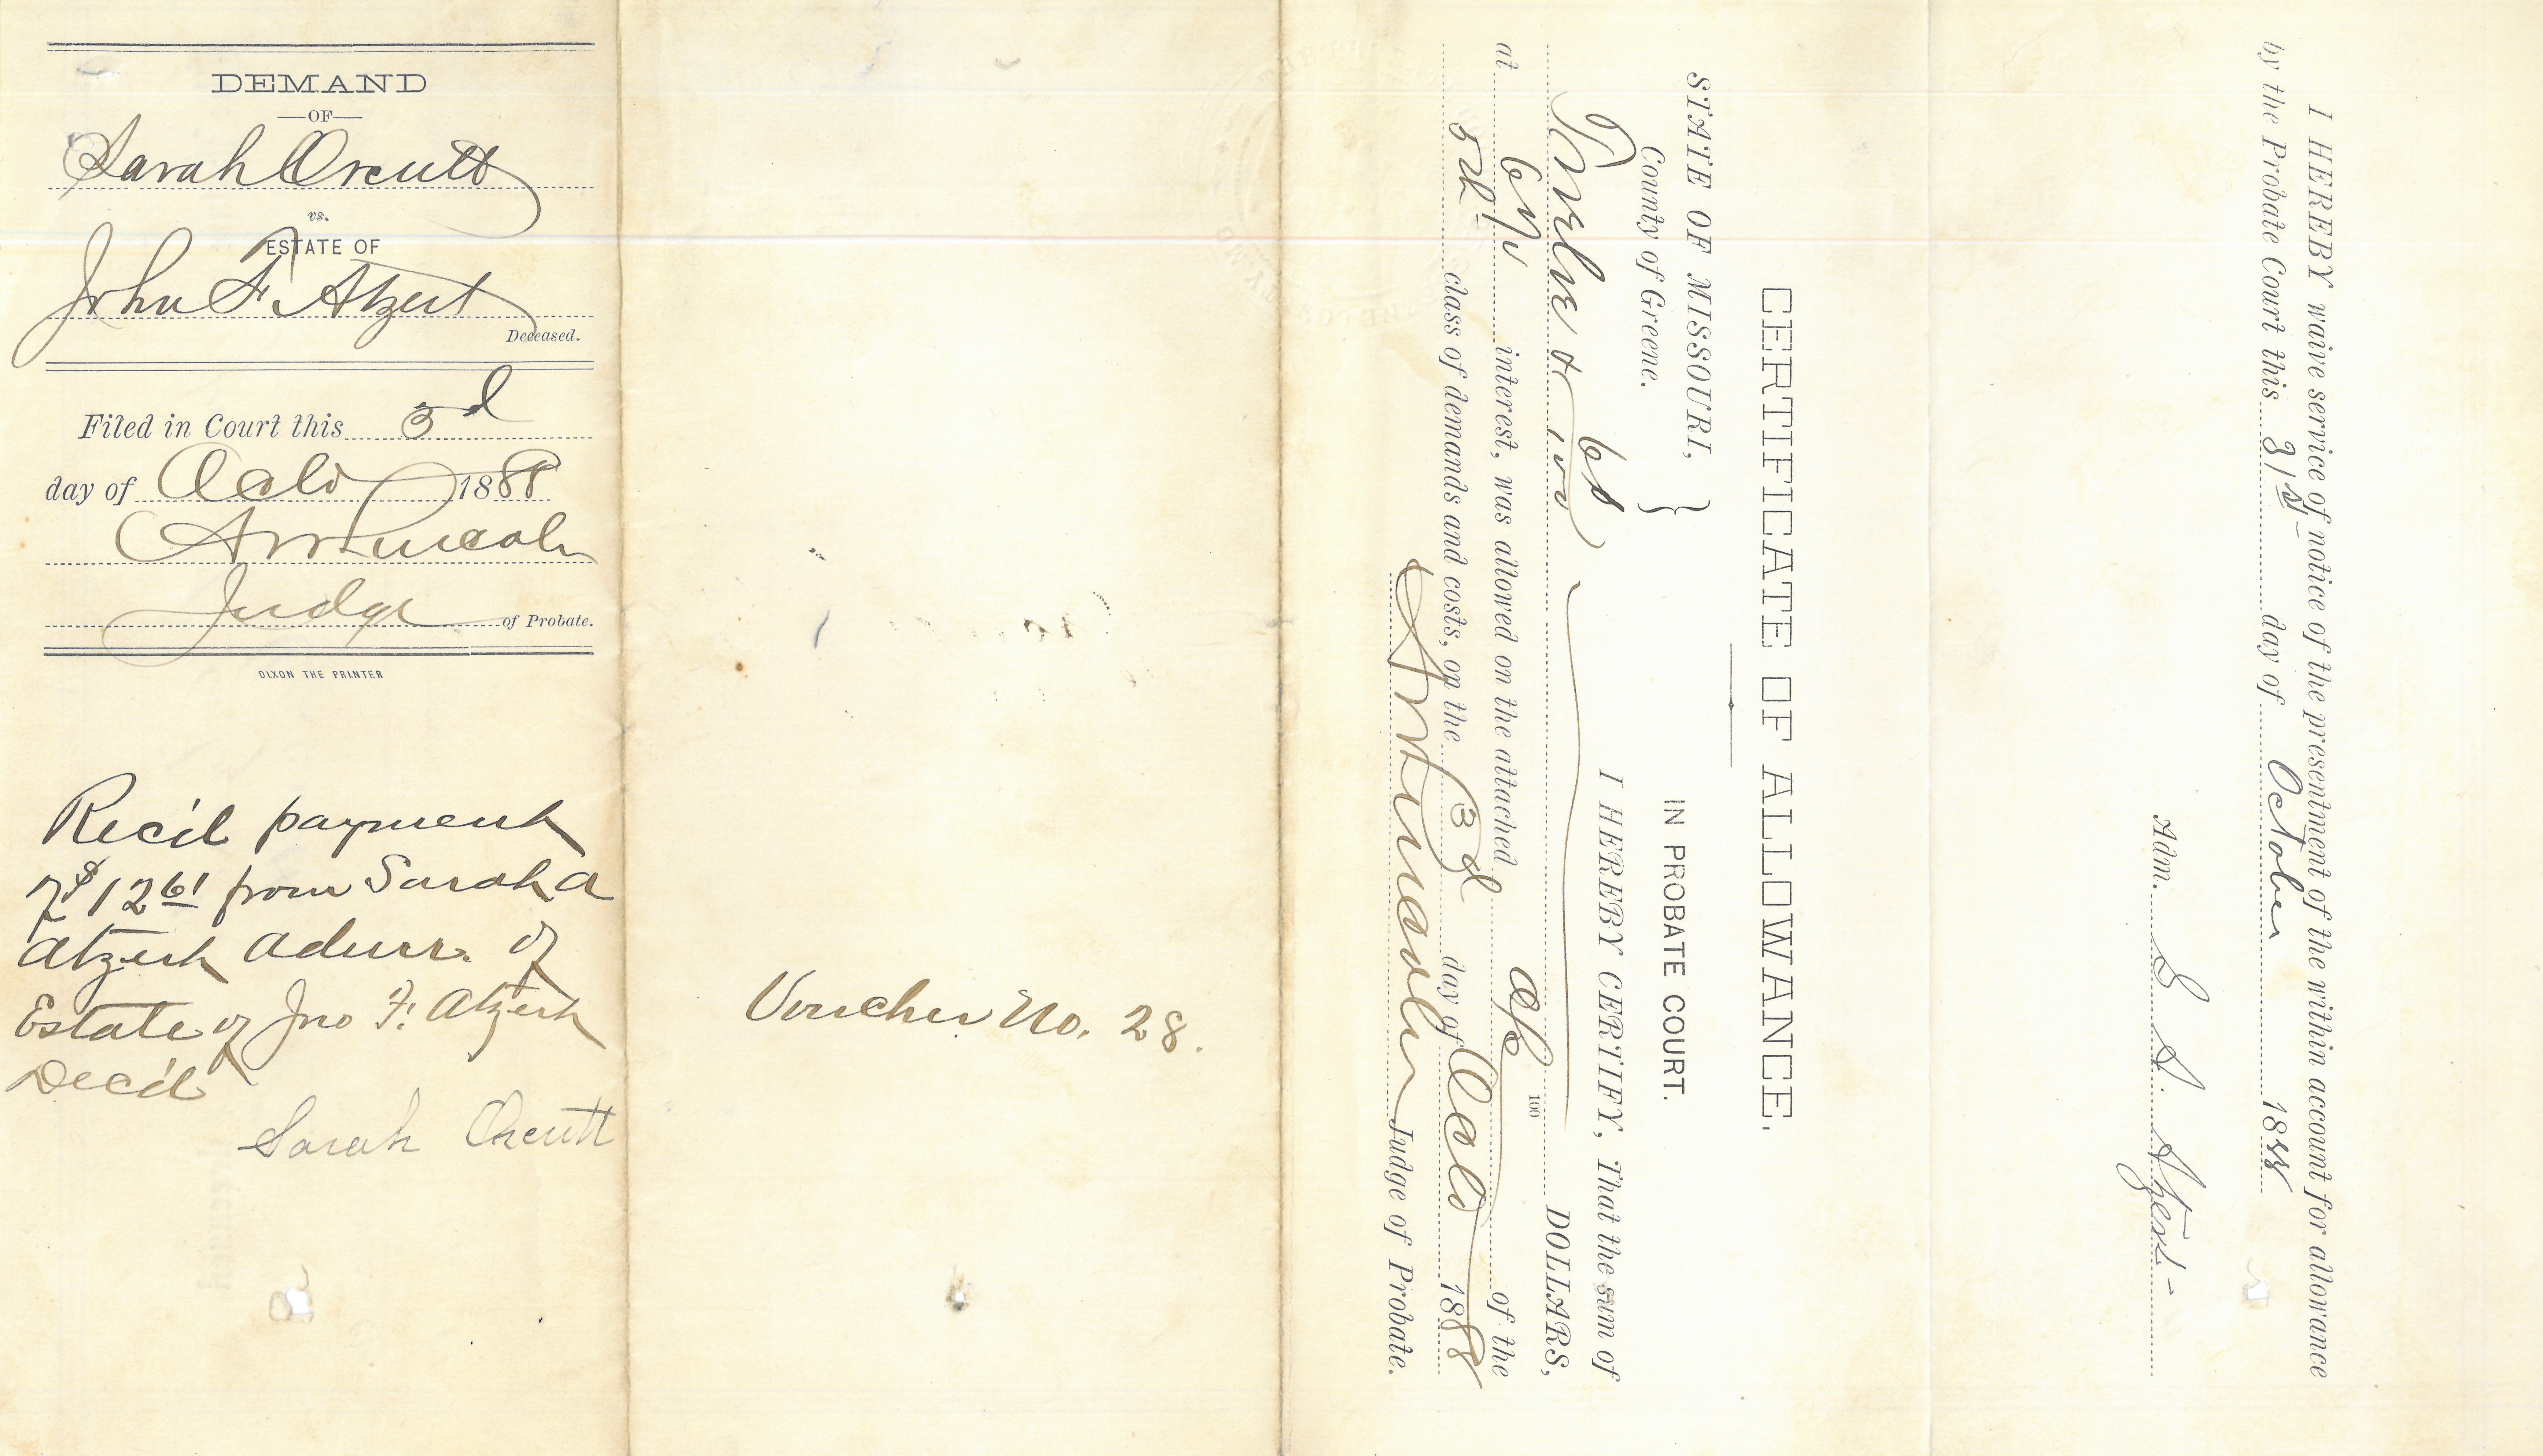 DEMAND
—OF—
Sarah Orcutt
vs.
ESTATE OF
John F. Atzert
Deceased.
Filed in Court this 3d
day of Octo 1888
Lincoln
Judge of Probate.
DIXON THE PRINTER
Rec'd payment
of $12 61 from Sarah A
Atzert Admr. of
Estate of Jno F. Atzert
Dec'd
Sarah Orcutt
Voucher No. 28.
CERTIFICATE OF ALLOWANCE.
STATE OF MISSOURI, }
County of Greene.
IN PROBATE COURT.
I HEREBY CERTIFY, That the sum of
Twelve & 61/100 100 DOLLARS,
at 6% interest, was allowed on the attached of the
5th class of demands and costs, on the 3d day of Octo 1888
Lincoln Judge of Probate.
I HEREBY waive service of notice of the presentment of the within account for allowance
by the Probate Court this 31st day of October 1888
Adm. S. A. Atzert